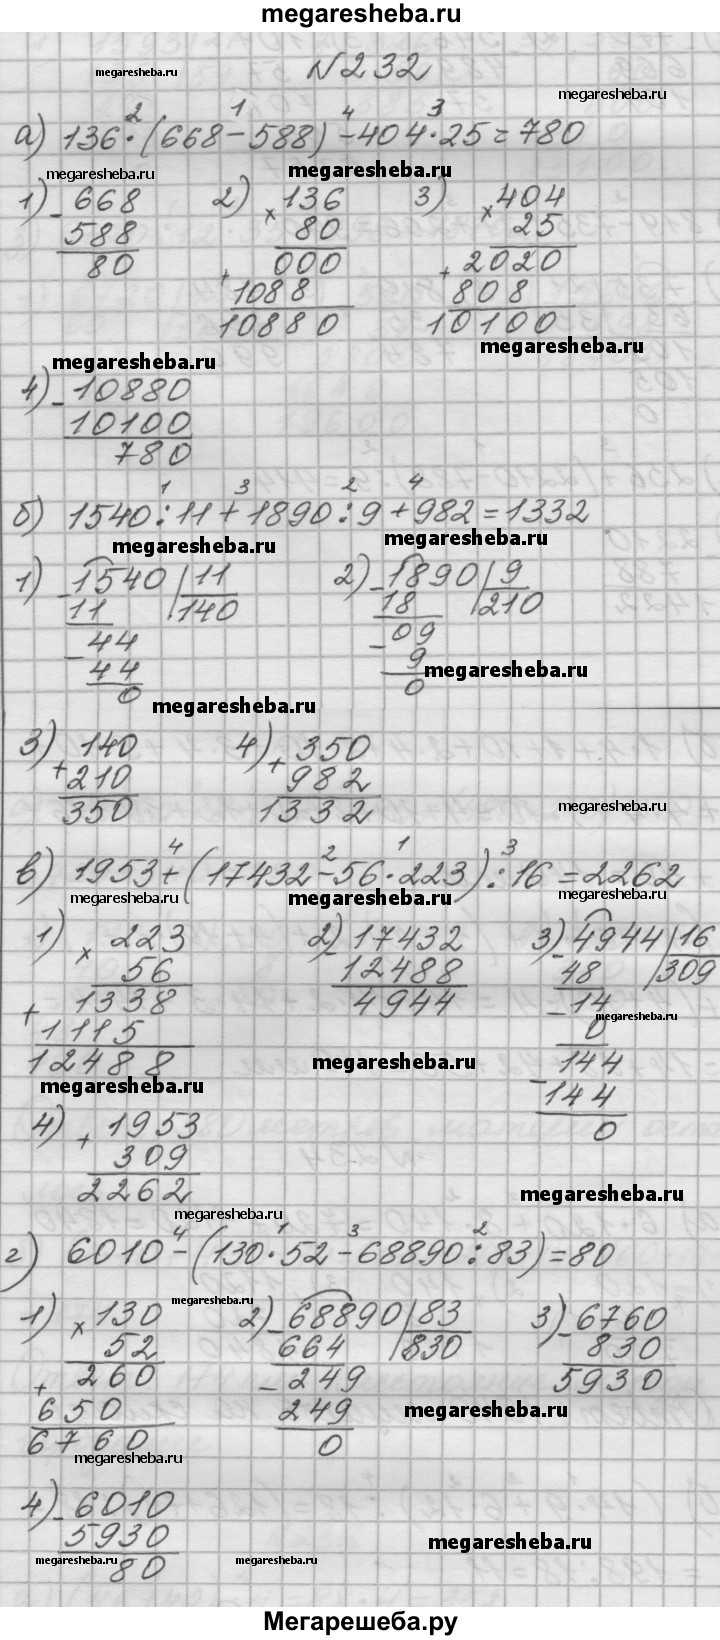 megaresheba.ru
№232
megaresheba.ru megaresheba.ru
2 1 4 3
а) 136·(668-588)-404·25=780
megaresheba.ru megaresheba.ru
1) - 668 2) × 136 3) × 404
588 80 25
80 000 + 2020
megaresheba.ru
+ 1088 808
10880 10100
megaresheba.ru megaresheba.ru
4) - 10880
10100
780
1 3 2 4
б) 1540:11+1890:9+982=1332
megaresheba.ru megaresheba.ru
1) - 1540 11 2) - 1890 9
11 140 18 210
- 44 - 09
44 9
0 0
megaresheba.ru megaresheba.ru
3) + 140 4) + 350
210 982
350 1332
megaresheba.ru
4 2 1 3
в) 1953+(17432-56·223):16=2262
megaresheba.ru megaresheba.ru megaresheba.ru
1) × 223 2) - 17432 3) - 4944 16
56 12488 48 309
+ 1338 4944 - 14
megaresheba.ru
1115 0
12488 - 144
megaresheba.ru megaresheba.ru
144
0
4) + 1953
309
2262
megaresheba.ru
megaresheba.ru
4 1 3 2
г) 6010-(130·52-68890:83)=80
megaresheba.ru megaresheba.ru
1) × 130 2) - 68890 83 3) - 6760
52 664 830 830
+ 260 - 249 5930
650 249
6760 0
megaresheba.ru megaresheba.ru
4) - 6010
5930
80
megaresheba.ru megaresheba.ru megaresheba.ru
Мегарешеба.ру